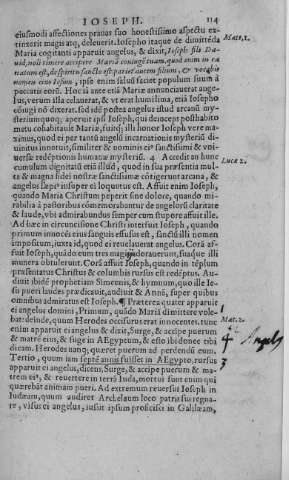 IOSEPH. 114
eiusmodi affectiones prauas suo honestissimo aspectu ex-
tinxerit magis atq, deleuerit. Iosepho itaque de dimittēda
Matt.1.
Maria cogitanti apparuit angelus, & dixit, Ioseph fili Da-
uid, noli timere accipere Mariā coniugē tuam, quod enim in ea
natum est, de spiritu sancto est pariet autem filium, & vocabis
nomen eius Iesum, ipso enim saluū faciet populum suum à
peccatis eorū. Hoc iā ante etiā Mariæ annunciauerat ange-
lus, verum illa celauerat, & vt erat humilima, etiā Iosepho
cōiugi nō dixerat. Sed id postea angelus istud arcanū my-
steriumq; aperit, aperit Iosepho, qui deinceps posthabito
metu cohabitauit Mariæ, fuitq; illi honor Iosepho vere ma-
ximus, quod ei per tantū angelū incarnationis mysteriū di-
uinitus innotuit, similiter & nominis eius sanctissimi & vni-
uersæ redēptionis humanæ mysteriū. 4 Accedit ad hunc
cumulum dignitatū etiā illud, quod in sua præsentia mul-
Luca 2.
ta & magna fidei nostræ sanctissimæ cōtigerunt arcana, &
angelus sæpe insuper ei loquutus est. Affuit enim Ioseph,
quando Maria Christum peperit sine dolore, quando mi-
rabilia à pastoribus cōmemorabantur de angelorū claritate
& laude, vbi admirabundus semper cum stupore affuit ille.
Ad hæc in circuncisione Christi interfuit Ioseph, quando
primum innocēs eius sanguis effusus est, sanctū illi nomen
impositum, iuxta id, quod ei reuelauerat angelus. Corā af-
fuit Ioseph, quādo eum tres magi adorauerunt, suaque illi
munera obtulerunt. Corā affuit Ioseph, quando in tēplum
præsentatus Christus & columbis rursus est redēptus. Au-
diuit ibidē prophetiam Simeonis, & hymnum, quo ille Ie-
su pueri laudes prædicauit, audiuit & Annā, super quibus
omnibus admiratus est Ioseph. ¶ Præterea quater apparuit
ei angelus domini, Primum, quādo Mariā dimittere vole-
Mat.2.
bat: deinde, quum Herodes occisurus erat innocentes. tunc
enim apparuit ei angelus & dixit, Surge, & accipe puerum
4 Angels
& matrē eius, & fuge in AEgyptum, & esto ibi donec tibi
dicam. Herodes nanq; quæret puerum ad perdendū eum.
Tertio, quum iam septē annis fuisset in AEgypto, rursus
apparuit ei angelus, dicens, Surge, & accipe puerum & ma-
3
trem eius, & reuertere in terrā Iuda, mortui sunt enim qui
quærebāt animam pueri. Ad extremum reuersus Ioseph in
Iudæam, quum audiret Archelaum loco patris sui regna-
re, visus ei angelus, iussit ipsum proficisci in Galilæam,